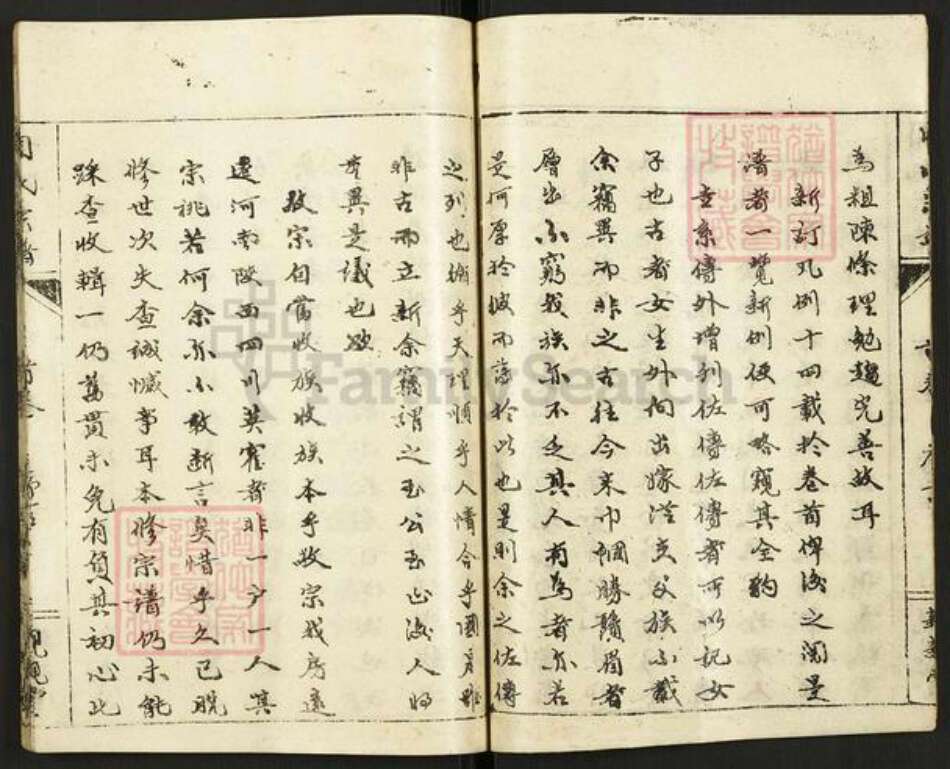 為粗陳條理勉趨完善故耳
新訂凡例十四載於卷首俾後之閱是
譜者一覽新例便可略窺其全豹
世系傳外增列佐傳佐傳者所以記女
子也古者女生外向出嫁從夫父族不載
余竊異而非之古往今來巾幗勝鬚眉者
層出不窮我族亦不乏其人有為者亦若
是何厚於彼而薄於此也是則余之佐傳
之列也揆乎天理順乎人情合乎國度雖
非古而立新余竊謂之至公至正後人將
無異是議也歟
敬宗自當收族收族本乎敬宗我房遠
遷河南陝西四川英霍者非一戶一人其
宗祧若何余亦不敢斷言矣惜乎久已脫
修世次失查誠憾事耳本修宗譜仍未能
踩查收輯一仍舊貫未免有負其初心此
FamilySearch